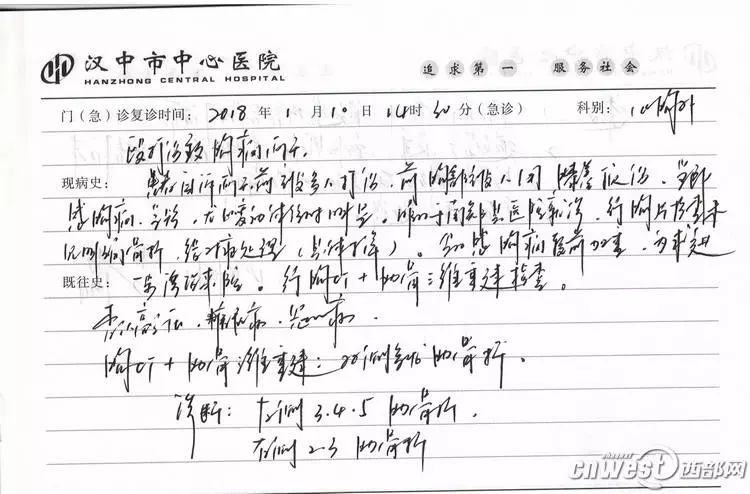 汉中市中心医院
HANZHONG CENTRAL HOSPITAL
追求第一 服务社会
门(急)诊复诊时间: 2018 年 1 月 10 日 14时30分(急诊) 科别: 心胸外
殴打伤致胸痛两天
现病史: 患者自诉两天前被多人打伤,前胸部被人用膝盖
感胸痛、 行胸片检查未
见明确骨折,给对症处理(具体不详)。 感胸痛较前加重,为求进
既往史: 一步诊治来院。行胸CT+肋骨三维重建检查。
否认高血压、糖尿病、冠心病。
胸CT+肋骨三维重建:双侧多发肋骨骨折。
诊断: 左侧3.4.5肋骨骨折。
右侧2-3肋骨骨折
cnwest 西部网